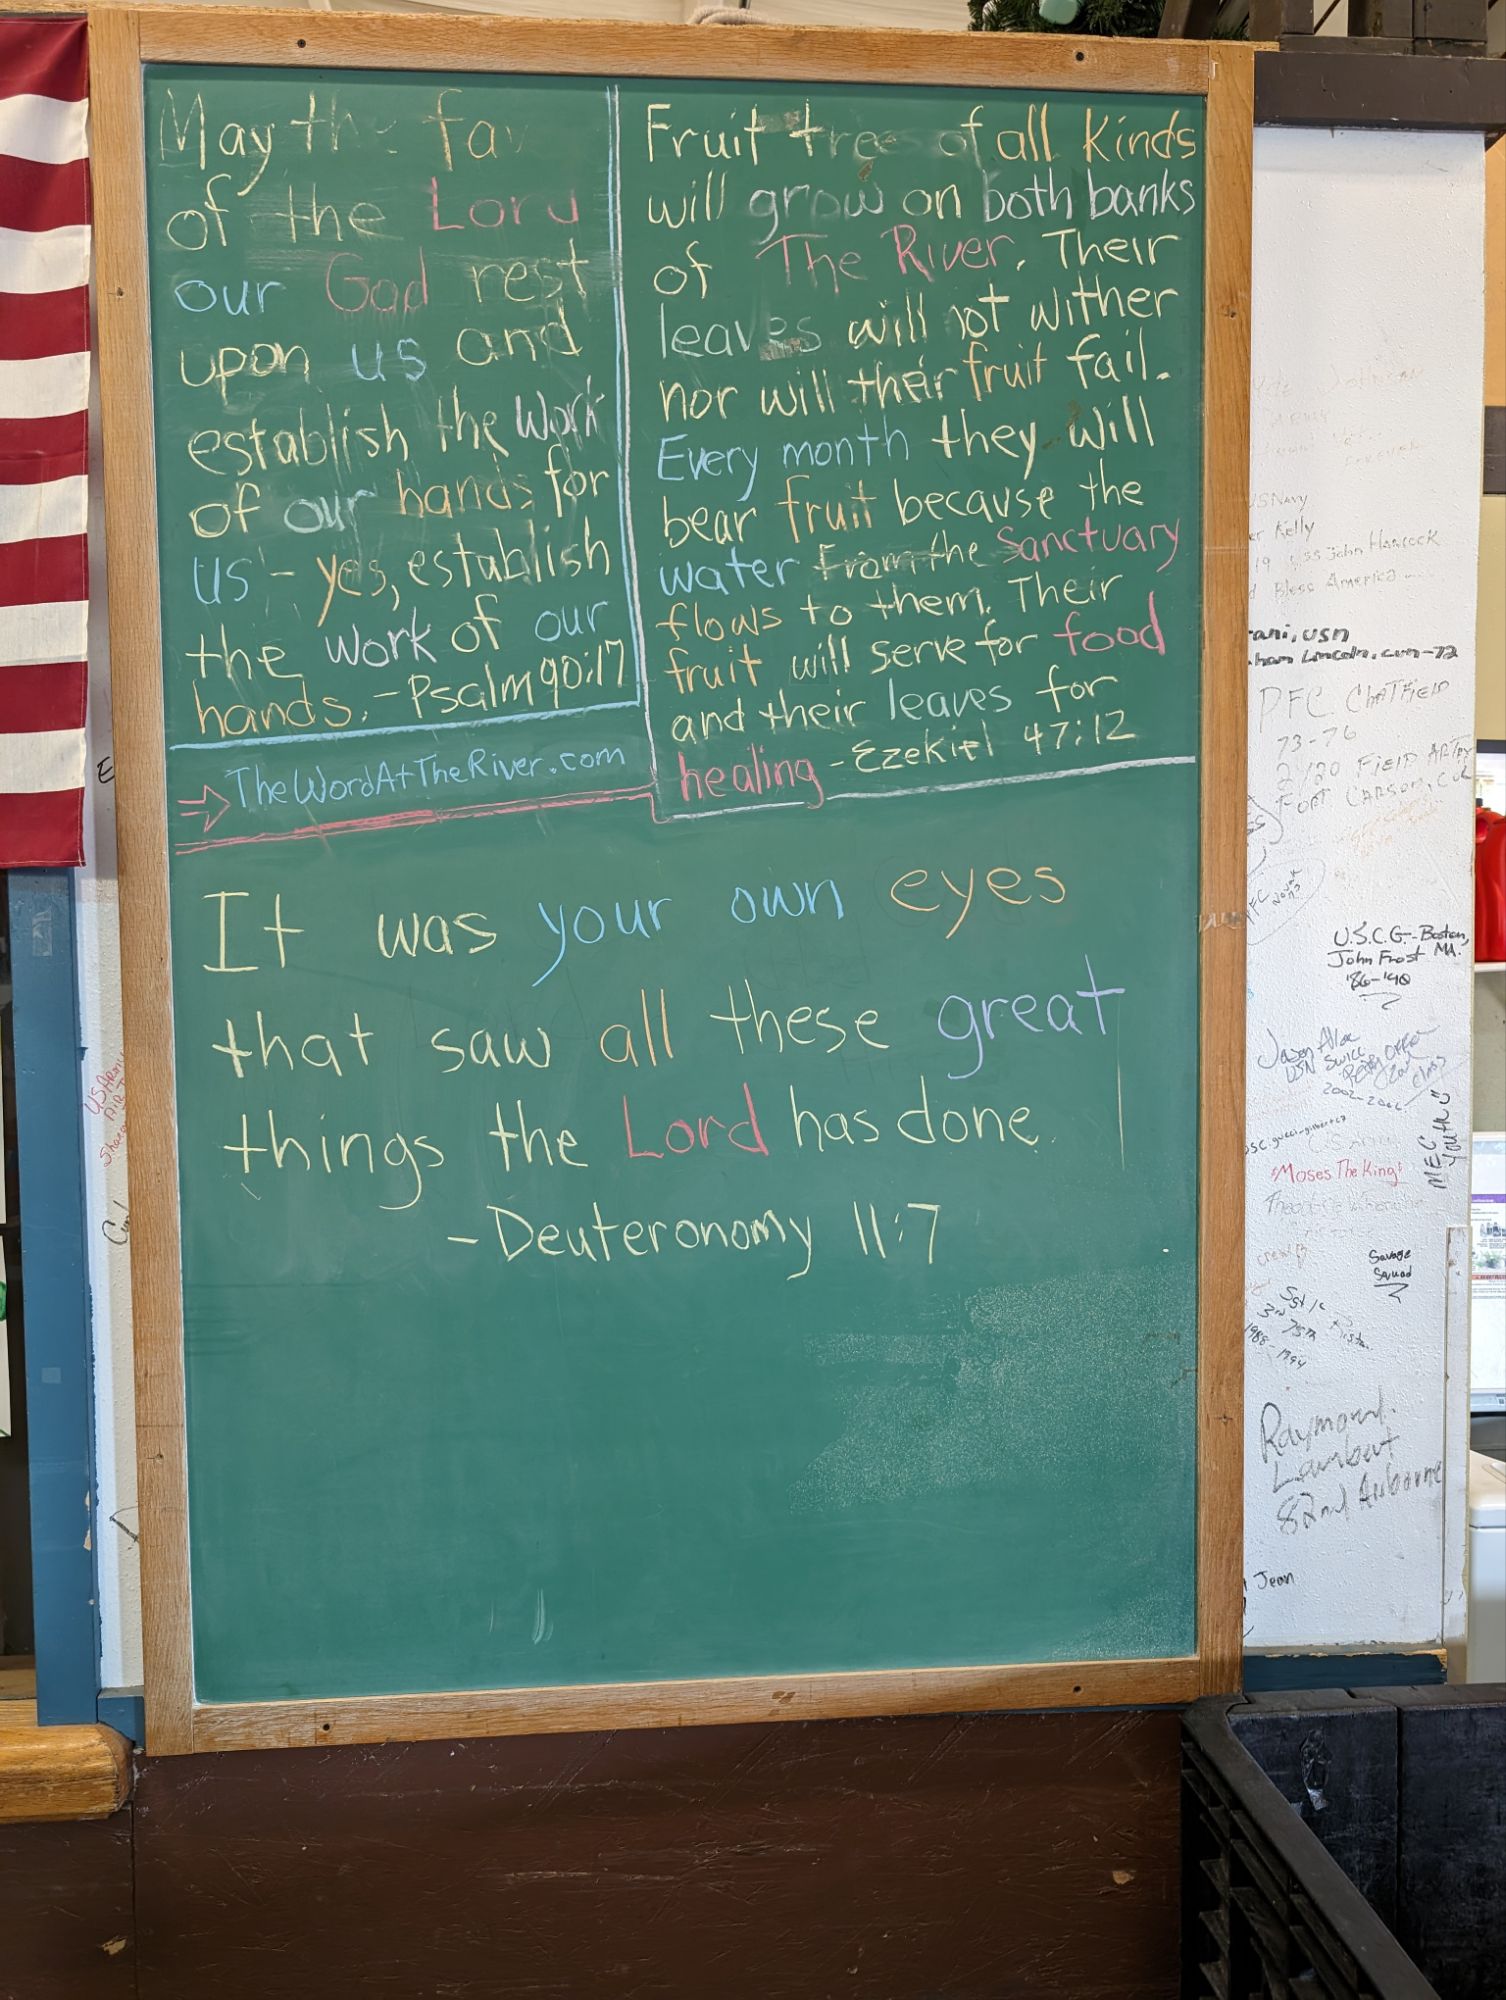 May the fav
of the Lord
our God rest
upon us and
establish the work
of our hands for
us - yes, establish
the work of our
hands. - Psalm 90:17
TheWordAtTheRiver.com
Fruit trees of all kinds
will grow on both banks
of The River. Their
leaves will not wither
nor will their fruit fail.
Every month they will
bear fruit because the
water from the Sanctuary
flows to them. Their
fruit will serve for food
and their leaves for
healing - Ezekiel 47:12
It was your own eyes
that saw all these great
things the Lord has done.
- Deuteronomy 11:7
USNavy
Kelly
19 USS John Hancock
Bless America
rani, USN
ham Lincoln, CVN-72
PFC Chatfield
73-76
2/20 Field Arty
Fort Carson, COL
PFC
U.S.C.G.-Boston,
John Frost MA.
'86-'90
USN
2002-2006
MEC
Youth
Moses The King
Savage
Squad
1988-1994
Raymond
Lambert
82nd Airborne
Jean
US Army